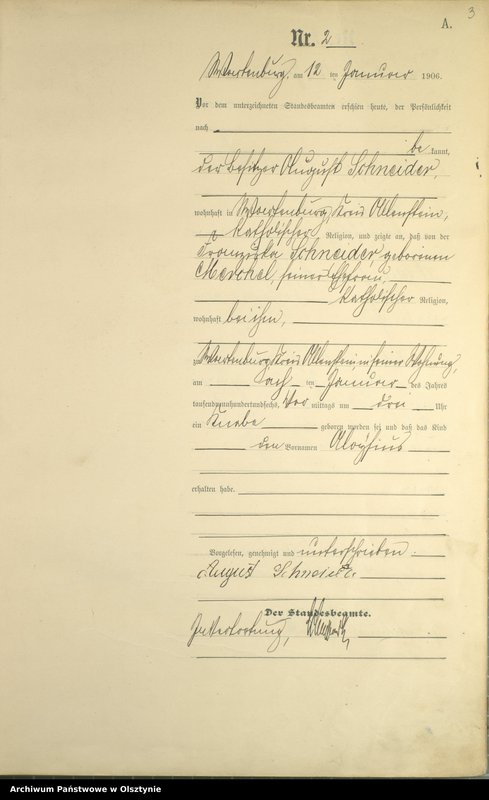 3
A.
Nr. 2
Wartenburg, am 12 ten Januar 1906.
Vor dem unterzeichneten Standesbeamten erschien heute, der Persönlichkeit
nach
be kannt,
der Besitzer August Schneider,
wohnhaft in Wartenburg, Kreis Allenstein,
katholischer Religion, und zeigte an, daß von der
Franziska Schneider geborenen
seiner Ehefrau,
katholischer Religion,
wohnhaft bei ihm,
zu Wartenburg, Kreis Allenstein, in seiner Wohnung,
am acht ten Januar des Jahres
tausendneunhundertundsechs, Vor mittags um drei Uhr
ein Knabe geboren worden sei und daß das Kind
den Vornamen Aloysius
erhalten habe.
Vorgelesen, genehmigt und unterschrieben.
August Schneider
Der Standesbeamte.
In Vertretung,
Archiwum Państwowe w Olsztynie